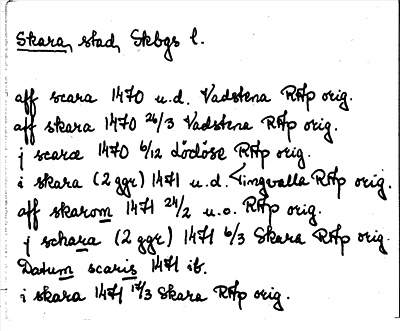 Skara, stad, Skbgs l.
aff scara 1470 u.d. Vadstena RAp orig.
aff skara 1470 26/3 Vadstena RAp orig.
j scaræ 1470 6/12 Lödöse RAp orig.
i skara (2 ggr) 1471 u.d. Lingvalla RAp orig.
aff skarom 1471 24/2 u.o. RAp orig.
j schara (2 ggr) 1471 6/3 Skara RAp orig.
Datum scaris 1471 ib.
i skara 1471 17/3 Skara RAp orig.